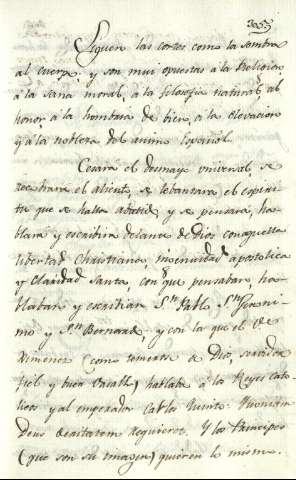 Siguen las cortes como la sombra
al cuerpo, y son mui opuestas a la Religion
á la sana moral, á la filosofia natural, al
honor, a la hombria de bien, a la elevacion
y á la nobleza del animo Español.
Cesará el desmayo universal, se
recobrara el aliento, se lebantara el espiri-
tu que se halla abatido, y se pensará, ha-
blara y escribira delante de Dios con aquella
libertad Christiana, ingenuidad apostolica
y claridad santa, con que pensaban, ha-
blaban y escribian Sn. Pablo Sn. Geroni-
mo y Sn. Bernardo, y con la que el
Ximenez (como temeroso de Dios, servidor
fiel y buen vasallo) hablaba á los Reyes Cato-
licos y al emperador Carlos Quinto. Quoniam
Deus veritatem requieret. Y los Principes
(que son su imagen) quieren lo mismo.